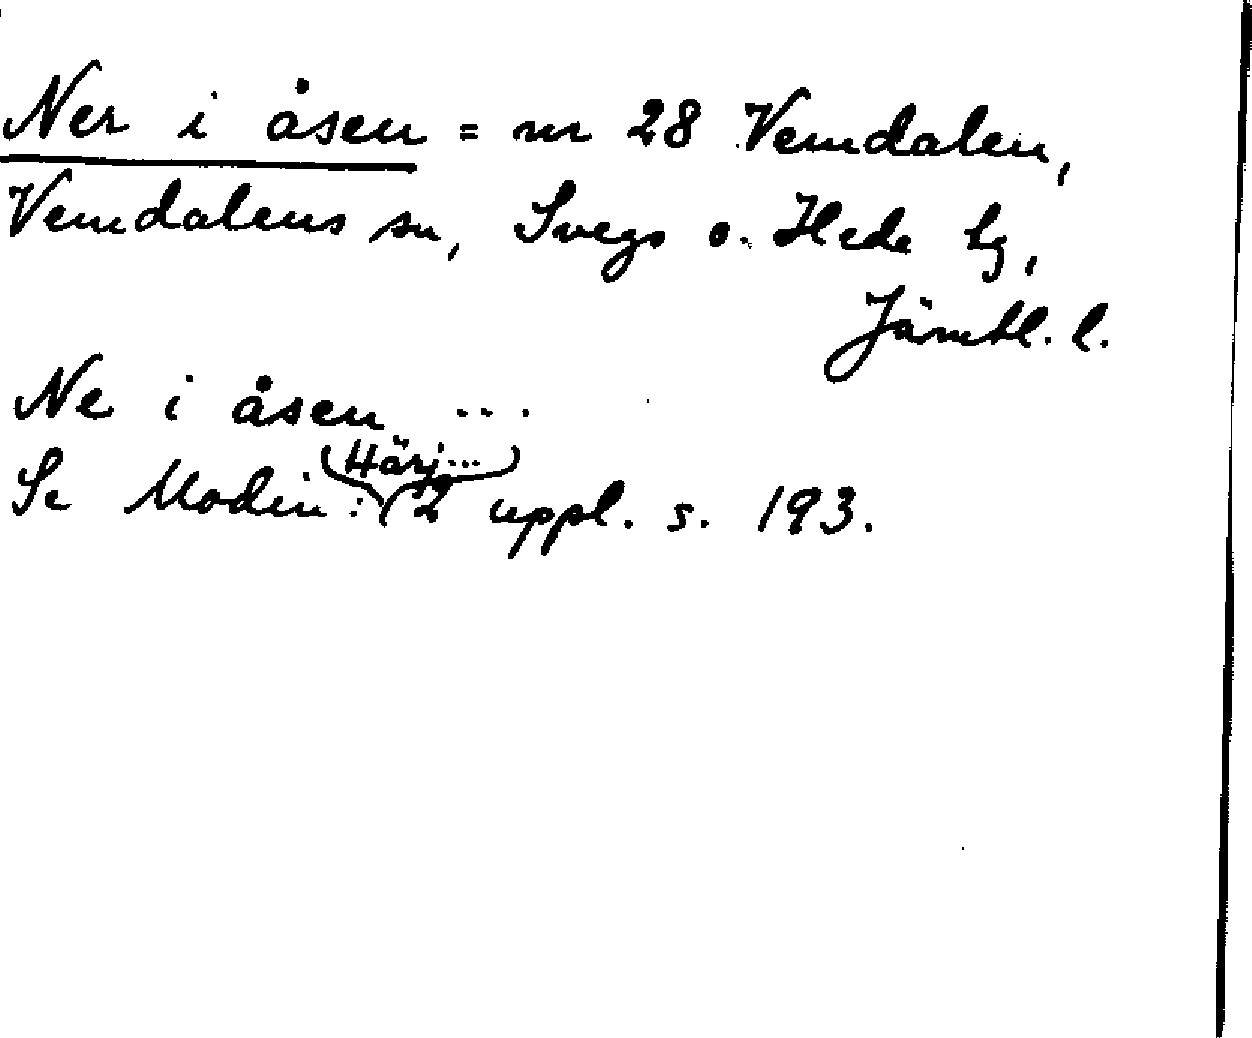 Ner i åsen = nr 28 Vemdalen,
Vemdalens sn, Svegs o. Hede tg,
Jämtl. l.
Ne i åsen ...
(Härj...)
Se Modin: (2 uppl. s. 193.